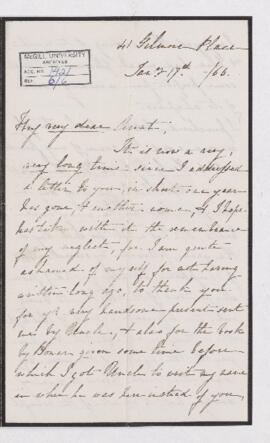 McGILL UNIVERSITY
ARCHIVES
ACC. NO. 1421
REF.
41 Gilmore Place
Jany 17th /66.
My very dear Aunt,
It is now a very,
very long time since I addressed
a letter to you, in short one year
has gone, & another come, & I hope
has taken with it the remembrance
of my neglect, for I am quite
ashamed of myself for not having
written long ago, to thank you
for yr very handsome present sent
me by Uncle, & also for the book
by Bonar given some time before
which I got Uncle to write my name
in when he was here instead of you,